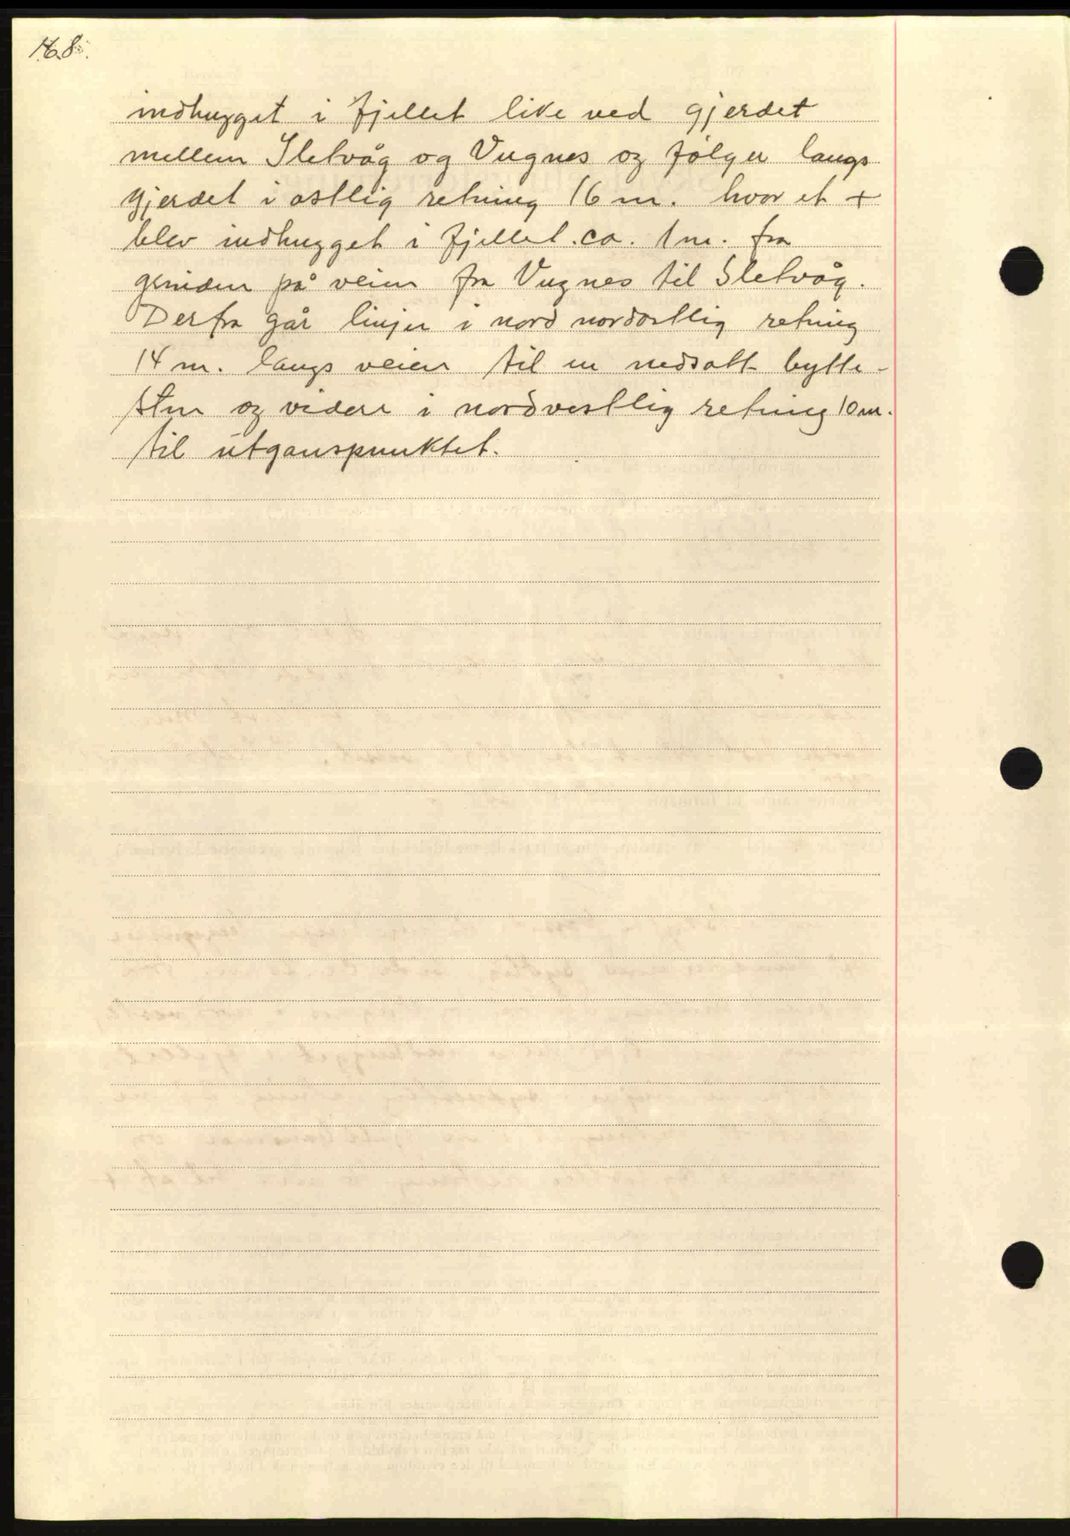 168.
indhugget i fjellet like ved gjerdet
mellem Sletvåg og Vugnes og følger langs
gjerdet i østlig retning 16 m. hvor et +
blev indhugget i fjellet ca. 1 m. fra
på veien fra Vugnes til Sletvåg.
Derfra går linjen i nord nordøstlig retning
14 m. langs veien til en nedsatt bytte-
sten og videre i nordvestlig retning 10 m.
til utganspunktet.